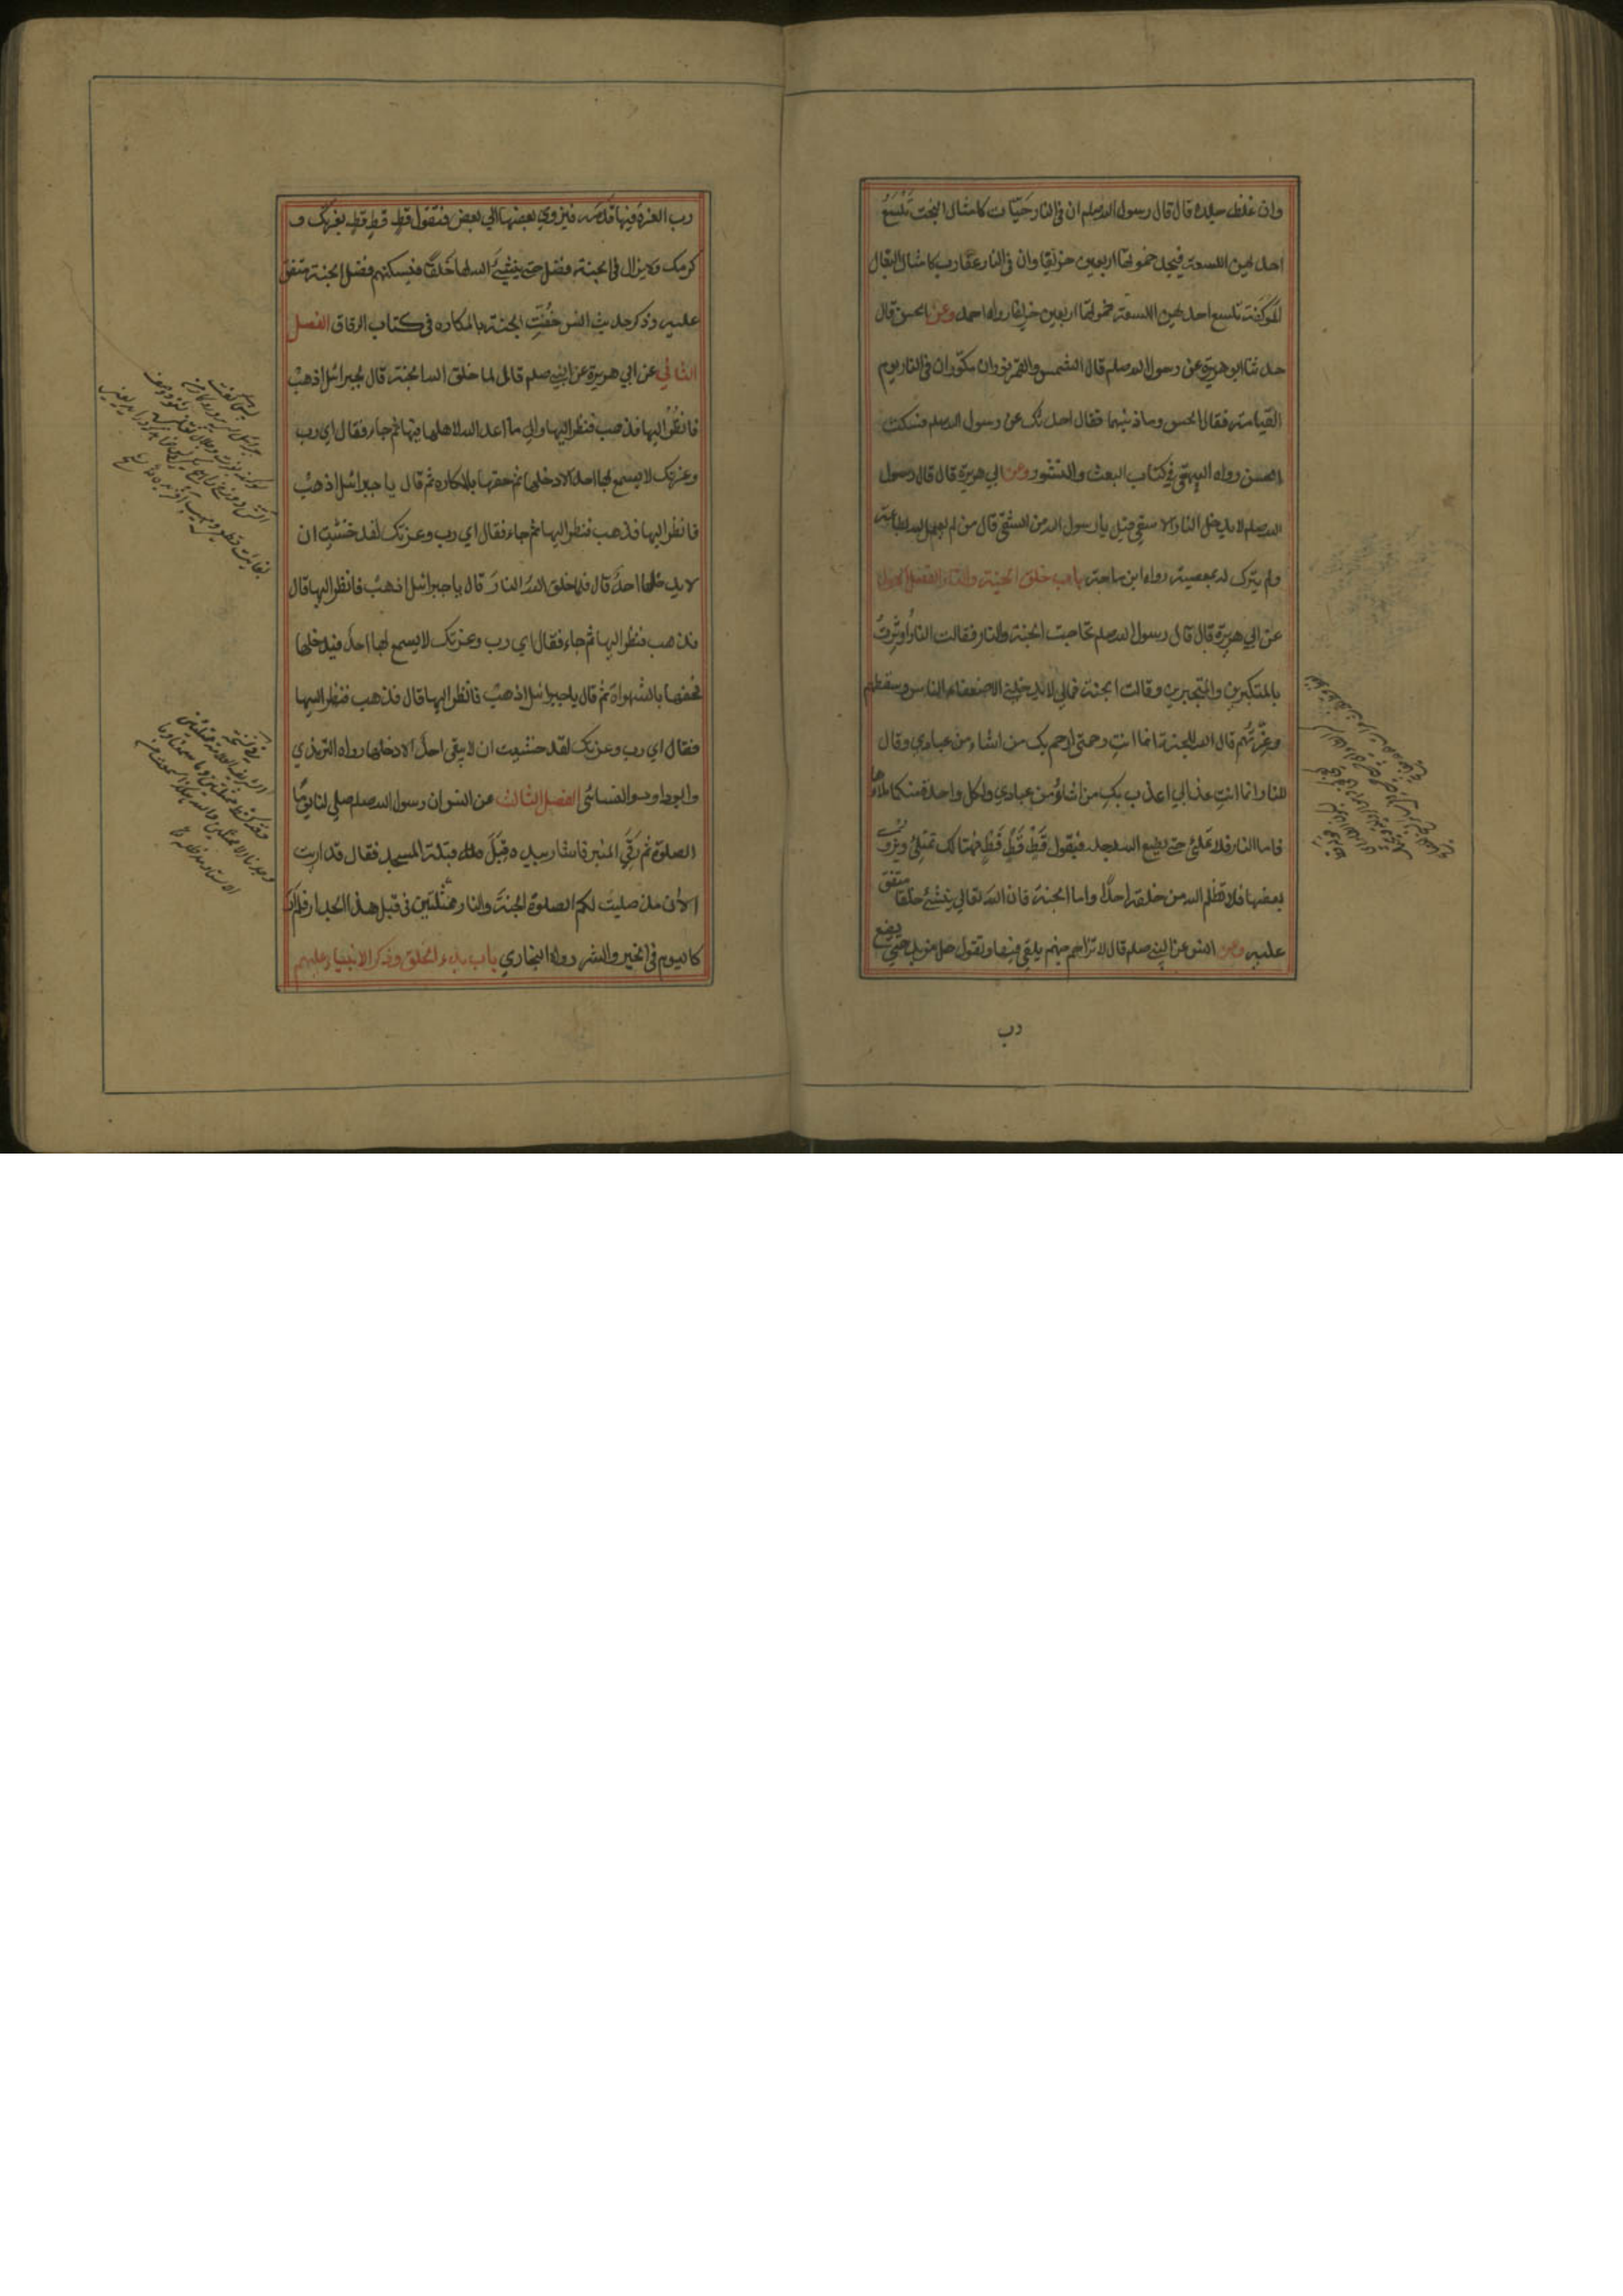 وان غلظ جلده قال قال رسول الله صلم ان في النار حيّات كامثال البخت تَلْسَعُ
احدلهن اللسعة فيجد حموتها اربعين خريفا وان في النار عقارب كامثال البغال
المؤكفة تلسع احدلهن اللسعة حموتها اربعين خريفا رواه احمد وعن الحسن قال
حدثنا ابو هريرة عن رسول الله صلم قال الشمس والقمر ثوران مكوّران في النار يوم
القيامة فقال الحسن وما ذنبهما فقال احدثك عن رسول الله صلم فسكت
الحسن رواه البيهقي في كتاب البعث والنشور وعن ابي هريرة قال قال رسول
الله صلم لا يدخل النار الا شقي قيل يا رسول الله من الشقي قال من لم يعمل لله بطاعة
ولم يترك له بمعصية رواه ابن ماجة باب خلق الجنة والنار الفصل الاول
عن ابي هريرة قال قال رسول الله صلم تحاجت الجنة والنار فقالت النار اُوثِرتُ
بالمتكبرين والمتجبرين وقالت الجنة فمالي لا يدخلني الا ضعفاء الناس وسقطهم
وغِرَّتُهم قال الله للجنة انما انتِ رحمتي ارحم بك من اشاء من عبادي وقال
للنار انما انتِ عذابي اعذب بكِ من اشاء من عبادي ولكل واحدة منكما ملاءها
فاما النار فلا تمتلئ حتى يضع الله رجله فيقول قَطْ قَطْ قَطْ فهنالك تمتلئ ويزوى
بعضها فلا يظلم الله من خلقه احدًا واما الجنة فان الله تعالى ينشئ خلقا متفق
عليه وعن انس عن النبي صلم قال لا تزال جهنم يلقى فيها وتقول هل من مزيد حتى يضع
رب
رب العزة فيها قدَمَه فيزوي بعضها الى بعض فتقول قطِ قطِ قطِ بعزتك و
كرمك ولا يزال في الجنة فضل حتى ينشئ الله لها خَلقًا فيسكنهم فضل الجنة متفق
عليه وذكر حديث انس حُفّتِ الجنة بالمكاره في كتاب الرقاق الفصل
الثاني عن ابي هريرة عن النبي صلم قال لما خلق الله الجنة قال لجبرائيل اذهبْ
فانظُر اليها فذهب فنظر اليها والى ما اعد الله لاهلها فيها ثم جاء فقال اي رب
وعزتك لا يسمع بها احد الا دخلها ثم حفها بالمكاره ثم قال يا جبرائيل اذهبْ
فانظر اليها فذهب فنظر اليها ثم جاء فقال اي رب وعزتك لقد خشيت ان
لا يدخلها احدٌ قال فلما خلق اللهُ النارَ قال يا جبرائيل اذهبْ فانظر اليها قال
فذهب فنظر اليها ثم جاء فقال اي رب وعزتك لا يسمع بها احدٌ فيدخلها
فحفها بالشهواة ثم قال يا جبرائيل اذهبْ فانظر اليها قال فذهب فنظر اليها
فقال اي رب وعزتك لقد خشيت ان لا يبقى احدٌ الا دخلها رواه الترمذي
وابو داود والنسائى الفصل الثالث عن انس ان رسول الله صلم صلى لنا يومًا
الصلوة ثم رَقِيَ المنبر فاشار بيده قِبَلَ قبلة المسجد فقال قد اريت
الآن مذ صليت لكم الصلوة الجنةَ والنار ممثلتين في قبل هذا الجدار فلم ارَ
كاليوم في الخير والشر رواه البخاري باب بدء الخلق وذكر الانبياء عليهم